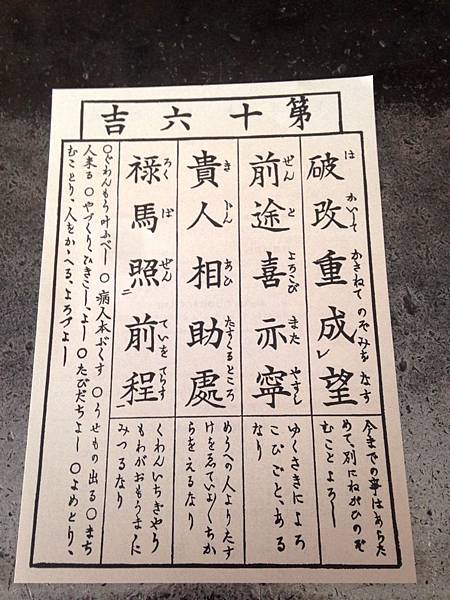 第十六吉
破改重成望
は かいて かさねて のぞみを なす
今までの事はあらた
めて、別にねがひのぞ
むことよろし
前途喜亦寧
ぜん と よろこび また やすし
ゆくさきによろ
こびごと、ある
なり
貴人相助處
き にん あひ たすくる ところ
めうへの人よりたす
けをゑていよ〱ちか
らをえるなり
禄馬照前程
ろく ば ぜん ていを てらす
くわんいちぎやう
もわがおもうまゝに
みつるなり
〇ぐわんもう叶ふべし 〇病人本ぶくす 〇うせもの出る〇まち
人来る 〇やづくり、ひきこし、よし 〇たびだちよし 〇よめとり、
むことり、人をかゝへる、よろづよし